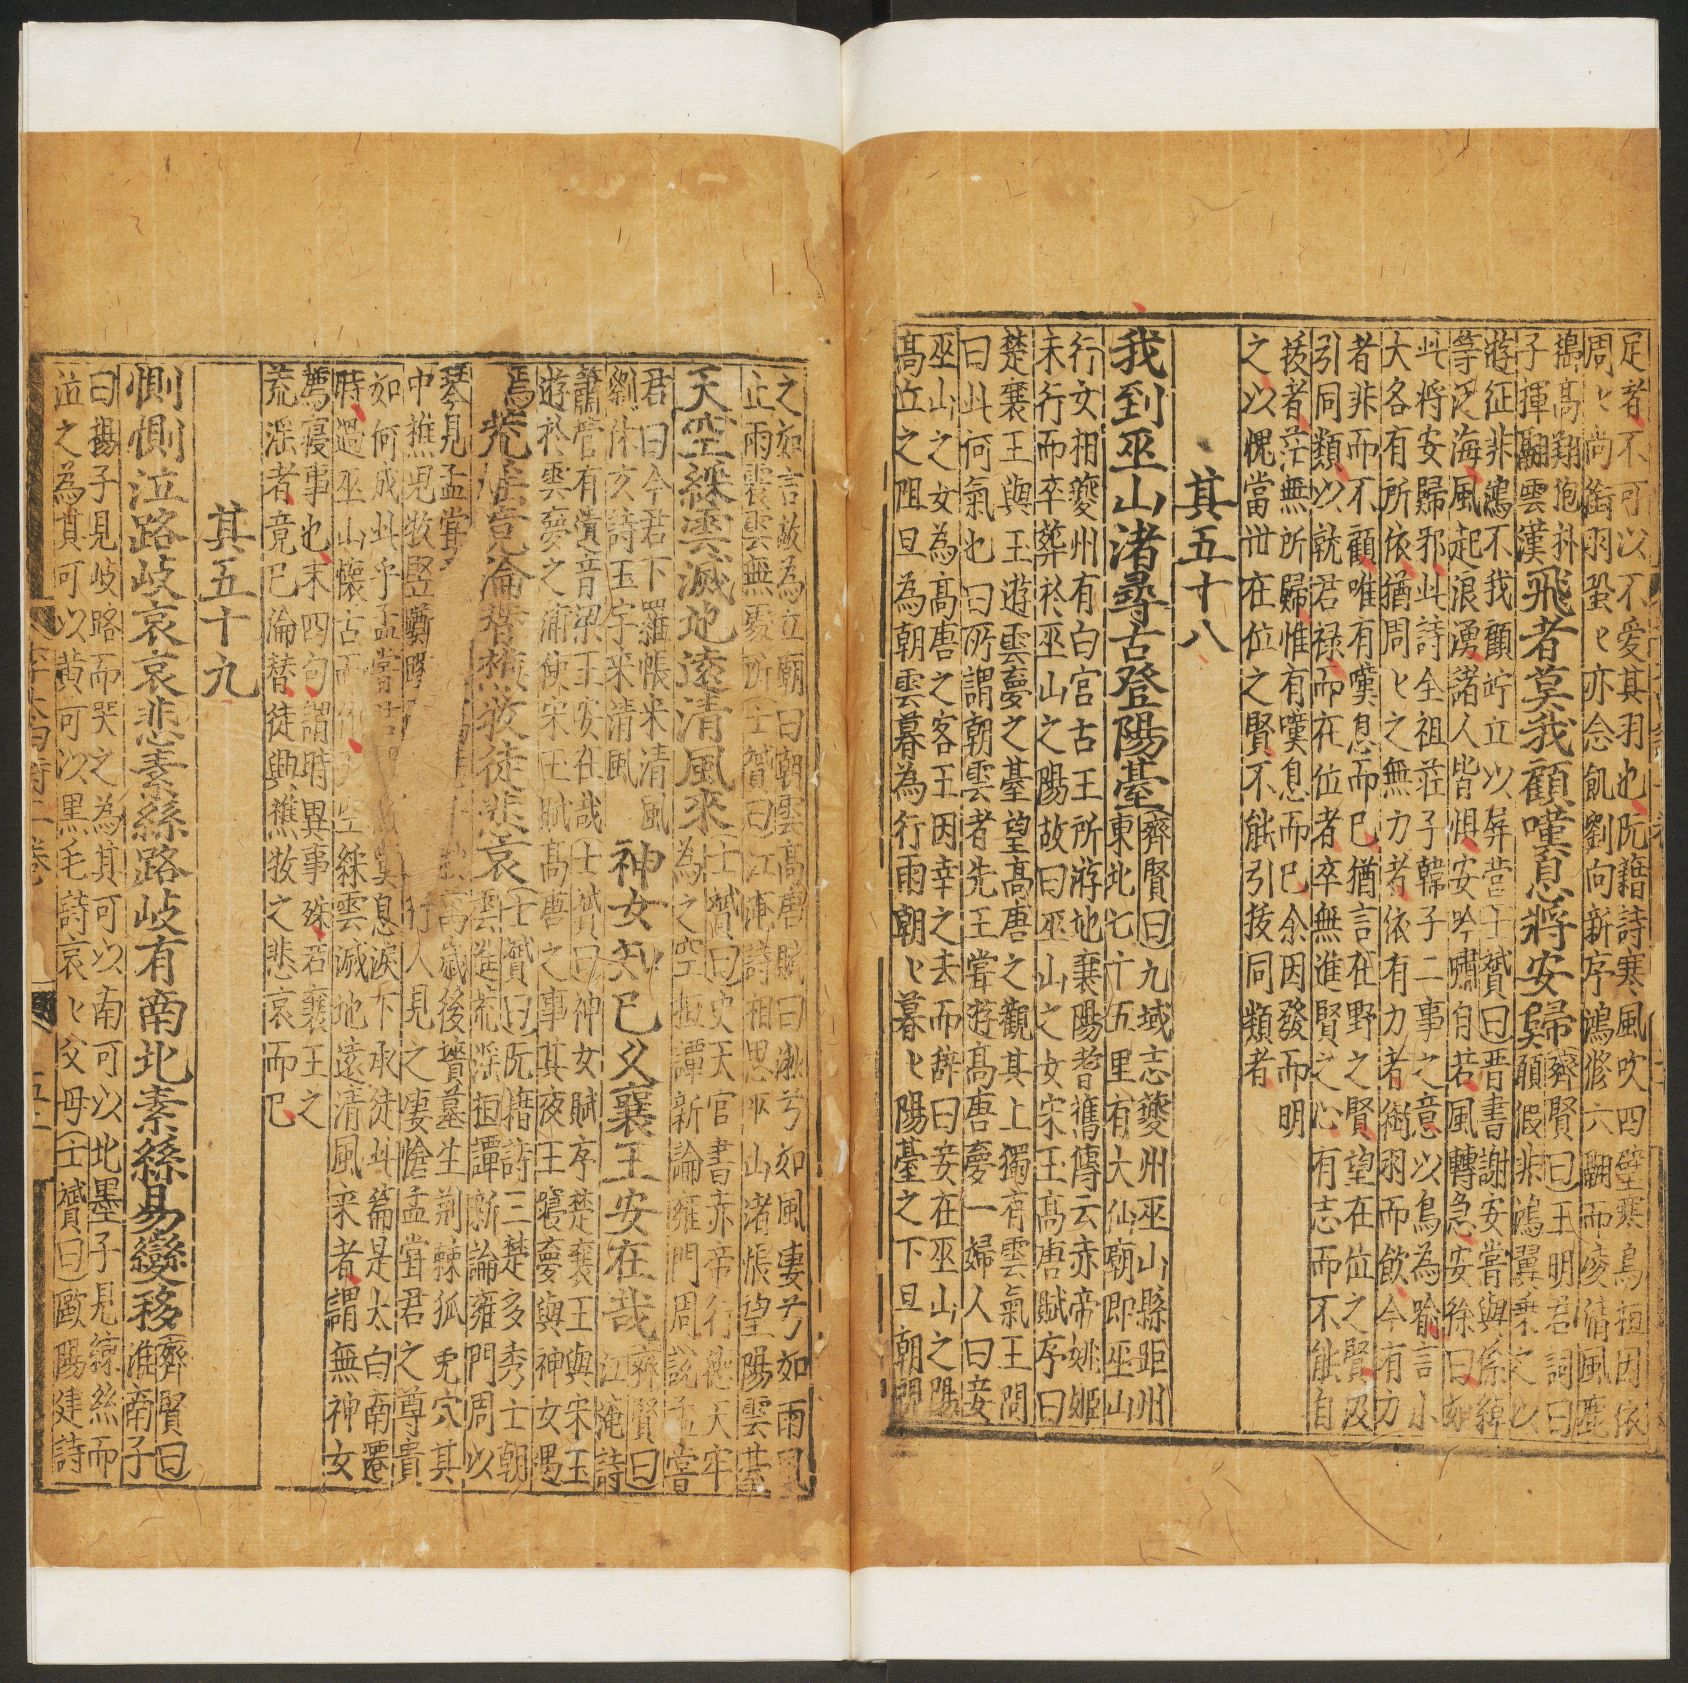 足者不可以不愛其羽也阮籍詩寒風吹四壁寒鳥相因依
周〻尚銜羽蛩〻亦念飢劉向新序鴻鵠六翮而凌清風麃
搖高翔抱朴
子揮翮雲漢
飛者莫我顧嘆息將安歸
齊賢曰王明君詞曰
願假非鴻翼乗之以
遊征非鴻不我顧竚立以屏營士贇曰晋書謝安嘗與孫綽
等泛海風起浪湧諸人皆惧安吟嘯自若風轉急安徐曰如
此將安歸邪此詩全祖莊子韓子二事之意以鳥為喻言小
大各有所依猶周〻之無力者依有力者銜羽而飲今有力
者非而不顧唯有嘆息而已猶言在野之賢望在位之賢汲
引同類以就君禄而在位者卒無進賢之心有志而不能自
拔者茫無所歸惟有嘆息而已余因發而明
之以愧當世在位之賢不能引拔同類者
其五十八
我到巫山渚尋古登陽臺
齊賢曰九域志夔州巫山縣距州
東北七十五里有大仙廟即巫山
行女相夔州有白宫古王所游地襄陽耆舊傳云赤帝姚姬
未行而卒葬於巫山之陽故曰巫山之女宋玉髙唐賦序曰
楚襄王與玉遊雲夢之臺望髙唐之觀其上獨有雲氣王問
曰此何氣也曰所謂朝雲者先王嘗遊髙唐夢一婦人曰妾
巫山之女為髙唐之客王因幸之去而辞曰妾在巫山之陽
髙丘之阻旦為朝雲暮為行雨朝〻暮〻陽臺之下旦朝視
之如言故為立廟曰朝雲髙唐賦曰湫兮如風凄兮如雨風
止雨霽雲無處所士贇曰江淹詩相思巫山渚悵望陽雲臺
天空綵雲滅地遠清風來
士贇曰史天官書赤帝行德天牢
為之空桓譚新論雍門周說孟嘗
君曰今君下羅帳來清風
劉休玄詩玉宇来清風
神女去已久襄王安在哉
齊賢曰
江淹詩
簫管有遺音梁王安在哉士贇曰神女賦序楚襄王與宋玉
遊於雲夢之浦使宋玉賦髙唐之事其夜王寝夢與神女遇
焉
荒淫竟淪替樵牧徒悲哀
士贇曰阮籍詩三楚多秀士朝
雲進荒淫桓譚新論雍門周以
琴見孟嘗
髙歲後墳墓生荆棘狐兎穴其
中樵兒牧竪躑躅
行人見之凄愴孟嘗君之尊貴
如何成此乎孟嘗
嘆息淚下承
徒此篇是太白南遷
時過巫山懷古而作
空綵雲滅地遠清風来者謂無神女
薦寝事也末四句謂時異事殊若襄王之
荒淫者竟已淪替徒興樵牧之悲哀而已
其五十九
惻惻泣路岐哀哀悲素絲路岐有南北素絲易變移
齊賢曰
淮南子
曰楊子見岐路而哭之為其可以南可以北墨子見練絲而
泣之為其可以黄可以黑毛詩哀〻父母士贇曰歐陽建詩